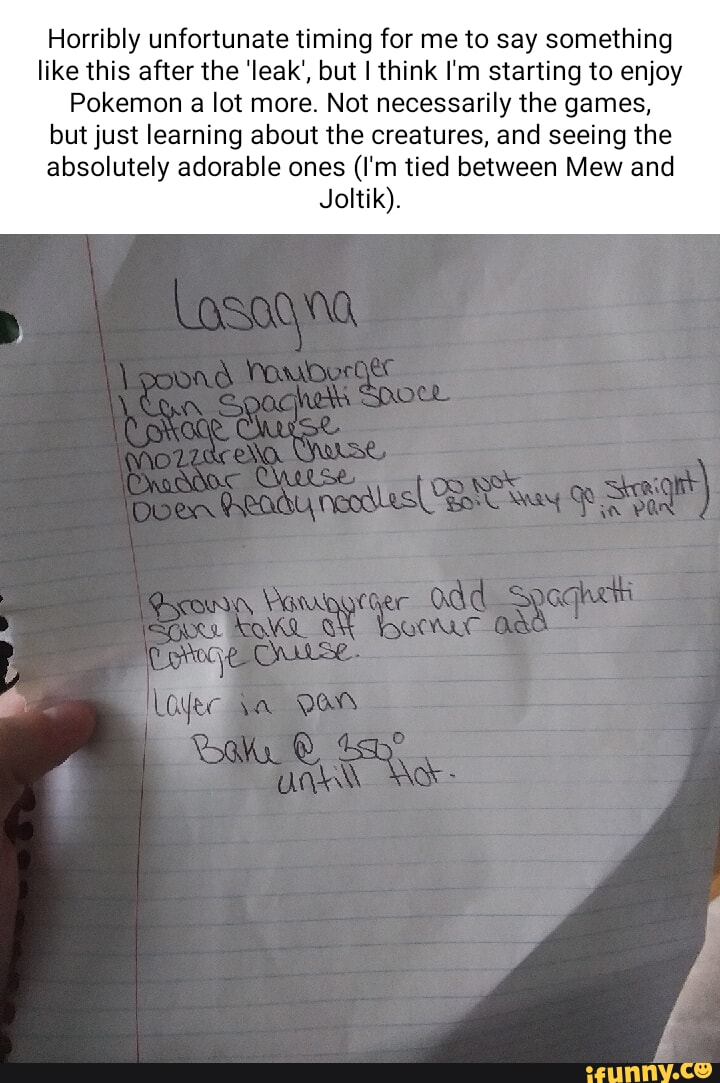 Horribly unfortunate timing for me to say something
like this after the 'leak', but I think I'm starting to enjoy
Pokemon a lot more. Not necessarily the games,
but just learning about the creatures, and seeing the
absolutely adorable ones (I'm tied between Mew and
Joltik).
Lasagna
1 pound hamburger
1 Can Spaghetti Sauce
Cottage Cheese
Mozzarella Cheese
Cheddar Cheese
Oven Ready noodles (DO NOT BOIL they go straight in pan)
Brown Hamburger add Spaghetti
Sauce take off burner add
Cottage Cheese.
Layer in pan
Bake @ 350°
untill Hot.
ifunny.co